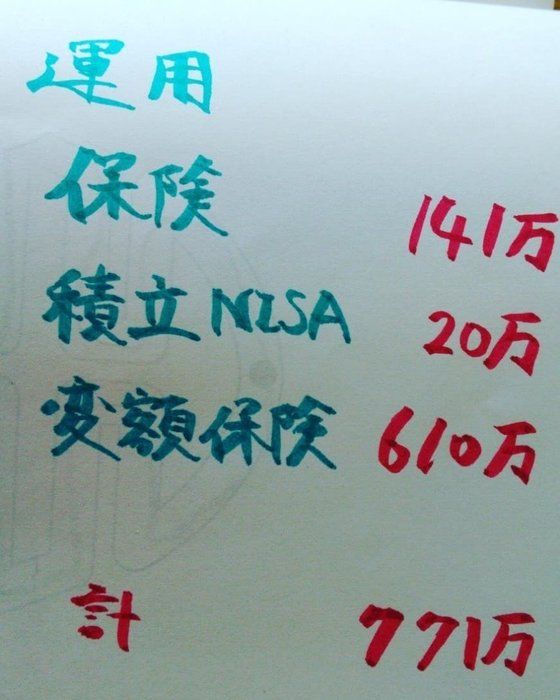 運用
保険 141万
積立NISA 20万
変額保険 610万
計 771万